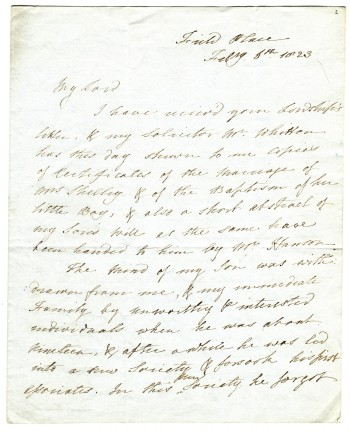 2
Field Place
Feby 6th 1823
My Lord
I have received your Lordship's
letter, & my Solicitor Mr. Whitton
has this day shewn to me copies
of Certificates of the marriage of
Mrs Shelley & of the Baptism of her
little Boy, & also a short abstract of
my Sons will as the same have
been handed to him by Mr Hanson
The mind of my Son was with
drawn from me, & my immediate
Family by unworthy & interested
individuals when he was about
nineteen, & after a while he was led
into a new Society & forsook his first
associates. In this new Society he forgot